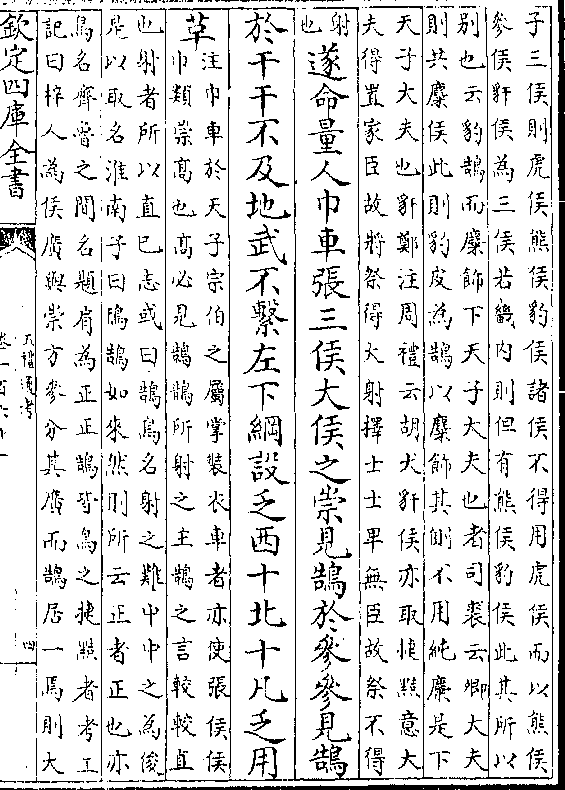 子三侯則虎侯熊侯豹侯諸侯不得用虎侯而以熊侯
參侯豻侯為三侯若畿内則但有熊侯豹侯此其所以
别也云豹鵠而麋飾下天子大夫也者司裘云卿大夫
則共麋侯此則豹皮為鵠以麋飾其側不用純麋是下
天子大夫也豻鄭注周禮云胡犬豻侯亦取怪黠意大
夫得置家臣故將祭得大射擇士士卑無臣故祭不得
射
也
遂命量人巾車張三侯大侯之崇見鵠於參參見鵠
於干干不及地武不繫左下綱設乏西十北十凡乏用
草
注巾車於天子宗伯之屬掌裝衣車者亦使張侯侯
巾類崇高也高必見鵠鵠所射之主鵠之言較較直
也射者所以直已志或曰鵠鳥名射之難中中之為俊
是以取名淮南子曰鳱鵠知來然則所云正者正也亦
鳥名齊魯之間名題肩為正正鵠皆鳥之捷黠者考工
記曰梓人為侯廣與崇方參分其廣而鵠居一焉則大
欽定四庫全書
五禮通考
四